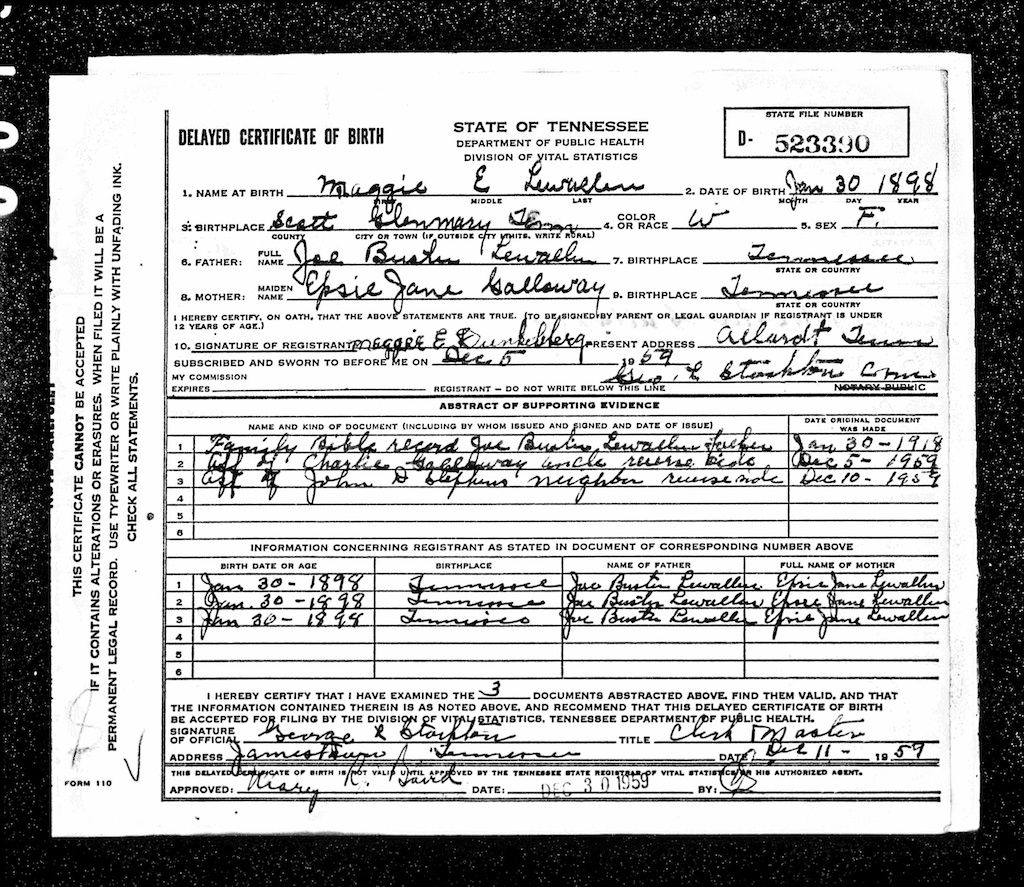 DELAYED CERTIFICATE OF BIRTH
STATE OF TENNESSEE
DEPARTMENT OF PUBLIC HEALTH
DIVISION OF VITAL STATISTICS
STATE FILE NUMBER
D- 523390
1. NAME AT BIRTH Maggie E Lewallen 2. DATE OF BIRTH Jan 30 1898
FIRST MIDDLE LAST MONTH DAY YEAR
3. BIRTHPLACE Scott Glenmary Tenn 4. COLOR OR RACE W 5. SEX F.
COUNTY CITY OR TOWN (IF OUTSIDE CITY LIMITS, WRITE RURAL)
6. FATHER: FULL NAME Joe Buster Lewallen 7. BIRTHPLACE Tennessee
STATE OR COUNTRY
8. MOTHER: MAIDEN NAME Epsie Jane Galloway 9. BIRTHPLACE Tennessee
STATE OR COUNTRY
I HEREBY CERTIFY, ON OATH, THAT THE ABOVE STATEMENTS ARE TRUE. (TO BE SIGNED BY PARENT OR LEGAL GUARDIAN IF REGISTRANT IS UNDER
12 YEARS OF AGE.)
10. SIGNATURE OF REGISTRANT Maggie E PRESENT ADDRESS Allardt Tenn
SUBSCRIBED AND SWORN TO BEFORE ME ON Dec 5 1959
MY COMMISSION Geo. R Stockton
EXPIRES REGISTRANT – DO NOT WRITE BELOW THIS LINE NOTARY PUBLIC
ABSTRACT OF SUPPORTING EVIDENCE
NAME AND KIND OF DOCUMENT (INCLUDING BY WHOM ISSUED AND SIGNED AND DATE OF ISSUE) DATE ORIGINAL DOCUMENT WAS MADE
1 Family Bible record Joe Buster Lewallen father Jan 30 - 1918
2 Aff of Charlie Galloway uncle reverse side Dec 5 - 1959
3 Aff of John D Stephens neighbor reverse side Dec 10 - 1959
4
5
6
INFORMATION CONCERNING REGISTRANT AS STATED IN DOCUMENT OF CORRESPONDING NUMBER ABOVE
BIRTH DATE OR AGE BIRTHPLACE NAME OF FATHER FULL NAME OF MOTHER
1 Jan 30 - 1898 Tennessee Joe Buster Lewallen Epsie Jane Lewallen
2 Jan. 30 - 1898 Tennessee Joe Buster Lewallen Epsie Jane Lewallen
3 Jan 30 - 1898 Tennessee Joe Buster Lewallen Epsie Jane Lewallen
4
5
6
I HEREBY CERTIFY THAT I HAVE EXAMINED THE 3 DOCUMENTS ABSTRACTED ABOVE. FIND THEM VALID. AND THAT
THE INFORMATION CONTAINED THEREIN IS AS NOTED ABOVE, AND RECOMMEND THAT THIS DELAYED CERTIFICATE OF BIRTH
BE ACCEPTED FOR FILING BY THE DIVISION OF VITAL STATISTICS, TENNESSEE DEPARTMENT OF PUBLIC HEALTH.
SIGNATURE OF OFFICIAL George R Stockton TITLE Clerk & Master
ADDRESS Jamestown, Tennessee DATE Dec 11 - 1959
THIS DELAYED CERTIFICATE OF BIRTH IS NOT VALID UNTIL APPROVED BY THE TENNESSEE STATE REGISTRAR OF VITAL STATISTICS OR HIS AUTHORIZED AGENT.
APPROVED: DATE: DEC 30 1959 BY:
FORM 110
THIS CERTIFICATE CANNOT BE ACCEPTED
IF IT CONTAINS ALTERATIONS OR ERASURES. WHEN FILED IT WILL BE A
PERMANENT LEGAL RECORD. USE TYPEWRITER OR WRITE PLAINLY WITH UNFADING INK.
CHECK ALL STATEMENTS.